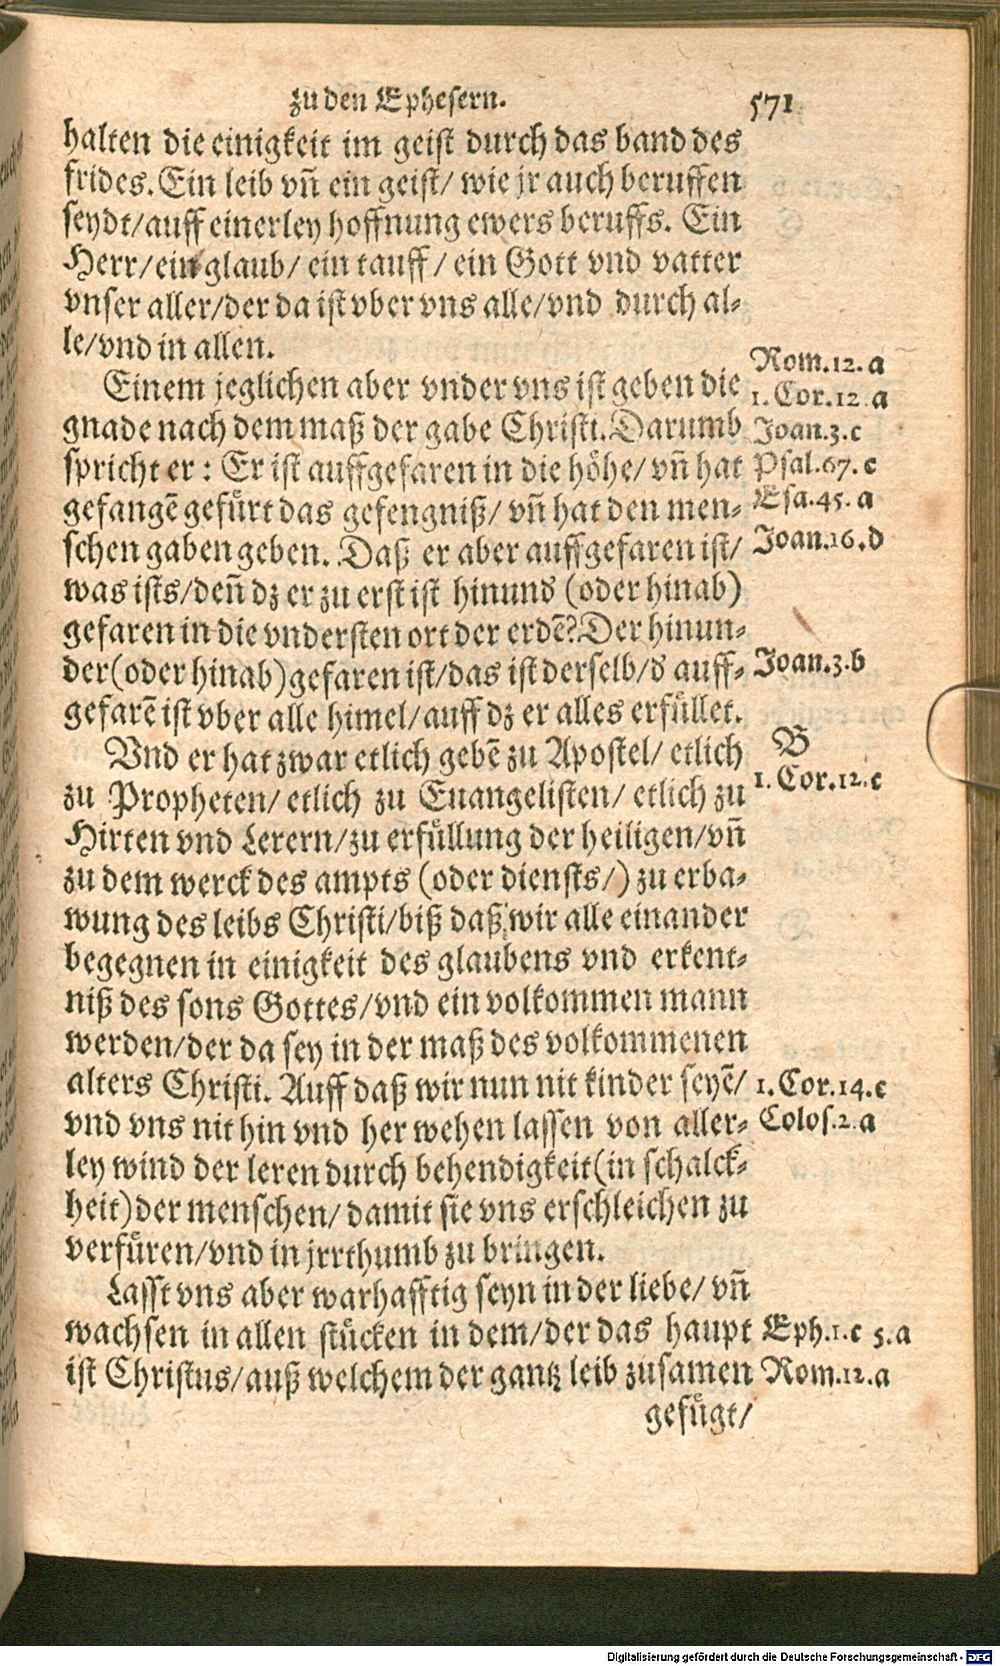 zu den Ephesern. 571
halten die einigkeit im geist durch das band des
frides. Ein leib vñ ein geist/ wie jr auch beruffen
seydt/auff einerley hoffnung ewers beruffs. Ein
Herr/ein glaub/ ein tauff/ ein Gott vnd vatter
vnser aller/der da ist vber vns alle/vnd durch al-
le/vnd in allen.
Einem jeglichen aber vnder vns ist geben die
gnade nach dem maß der gabe Christi. Darumb
spricht er: Er ist auffgefaren in die höhe/ vñ hat
gefangē gefürt das gefengniß/ vñ hat den men-
schen gaben geben. Daß er aber auffgefaren ist/
was ists/deñ dz er zu erst ist hinund (oder hinab)
gefaren in die vndersten ort der erdē? Der hinun-
der(oder hinab)gefaren ist/das ist derselb/d auff-
gefarē ist vber alle himel/auff dz er alles erfüllet.
Vnd er hat zwar etlich gebē zu Apostel/ etlich
zu Propheten/ etlich zu Euangelisten/ etlich zu
Hirten vnd Lerern/zu erfüllung der heiligen/vñ
zu dem werck des ampts (oder diensts/) zu erba-
wung des leibs Christi/biß daß wir alle einander
begegnen in einigkeit des glaubens vnd erkent-
niß des sons Gottes/vnd ein volkommen mann
werden/der da sey in der maß des volkommenen
alters Christi. Auff daß wir nun nit kinder seyē/
vnd vns nit hin vnd her wehen lassen von aller-
ley wind der leren durch behendigkeit(in schalck-
heit)der menschen/ damit sie vns erschleichen zu
verfüren/vnd in jrrthumb zu bringen.
Lasst vns aber warhafftig seyn in der liebe/ vñ
wachsen in allen stücken in dem/der das haupt
ist Christus/auß welchem der gantz leib zusamen
gefügt/
Rom.12.a
1.Cor.12.a
Joan.3.c
Psal.67.c
Esa.45.a
Joan.16.d
Joan.3.b
B
1.Cor.12.c
1.Cor.14.c
Colos.2.a
Eph.1.c 5.a
Rom.12.a
Digitalisierung gefördert durch die Deutsche Forschungsgemeinschaft - DFG